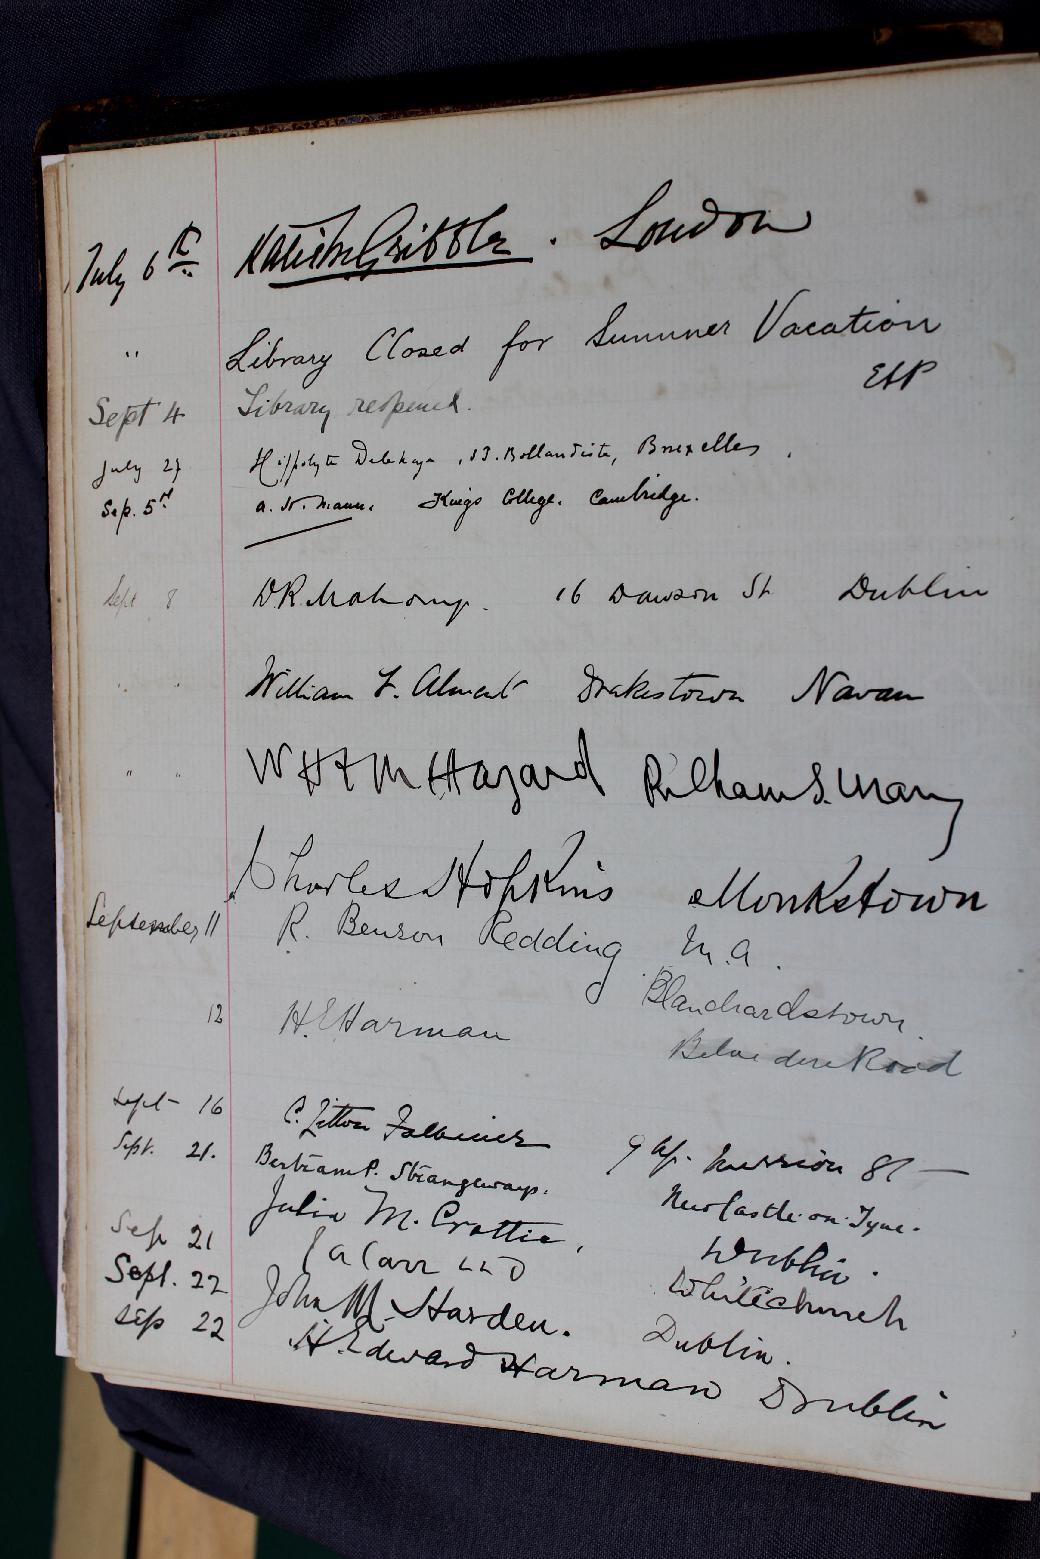 July 6th Gribble. London
" Library Closed for Summer Vacation
Sept 4 Library reopened.
July 27 Hippolyte Delehaye, Bollandiste, Bruxelles.
Sep. 5th A. H. Mann. Kings College. Cambridge.
Sept 8 D R Mahony. 16 Dawson St Dublin
" " William F. Alment Drakestown Navan
" " W H F M Hazard
Charles Hopkins Monkstown
September 11 R. Benson Redding M.A.
Blanchardstown.
12 H E Harman Belvedere Road
Sept 16 C. Litton Falkiner
Sept. 21. Bertram P. Strangeways. Newcastle-on-Tyne.
Julia M. Crottie, Dublin.
Sep 21 Carr LLD Whitechurch
Sept. 22 John M. Harden. Dublin.
Sep 22 H. Edward Harman Dublin